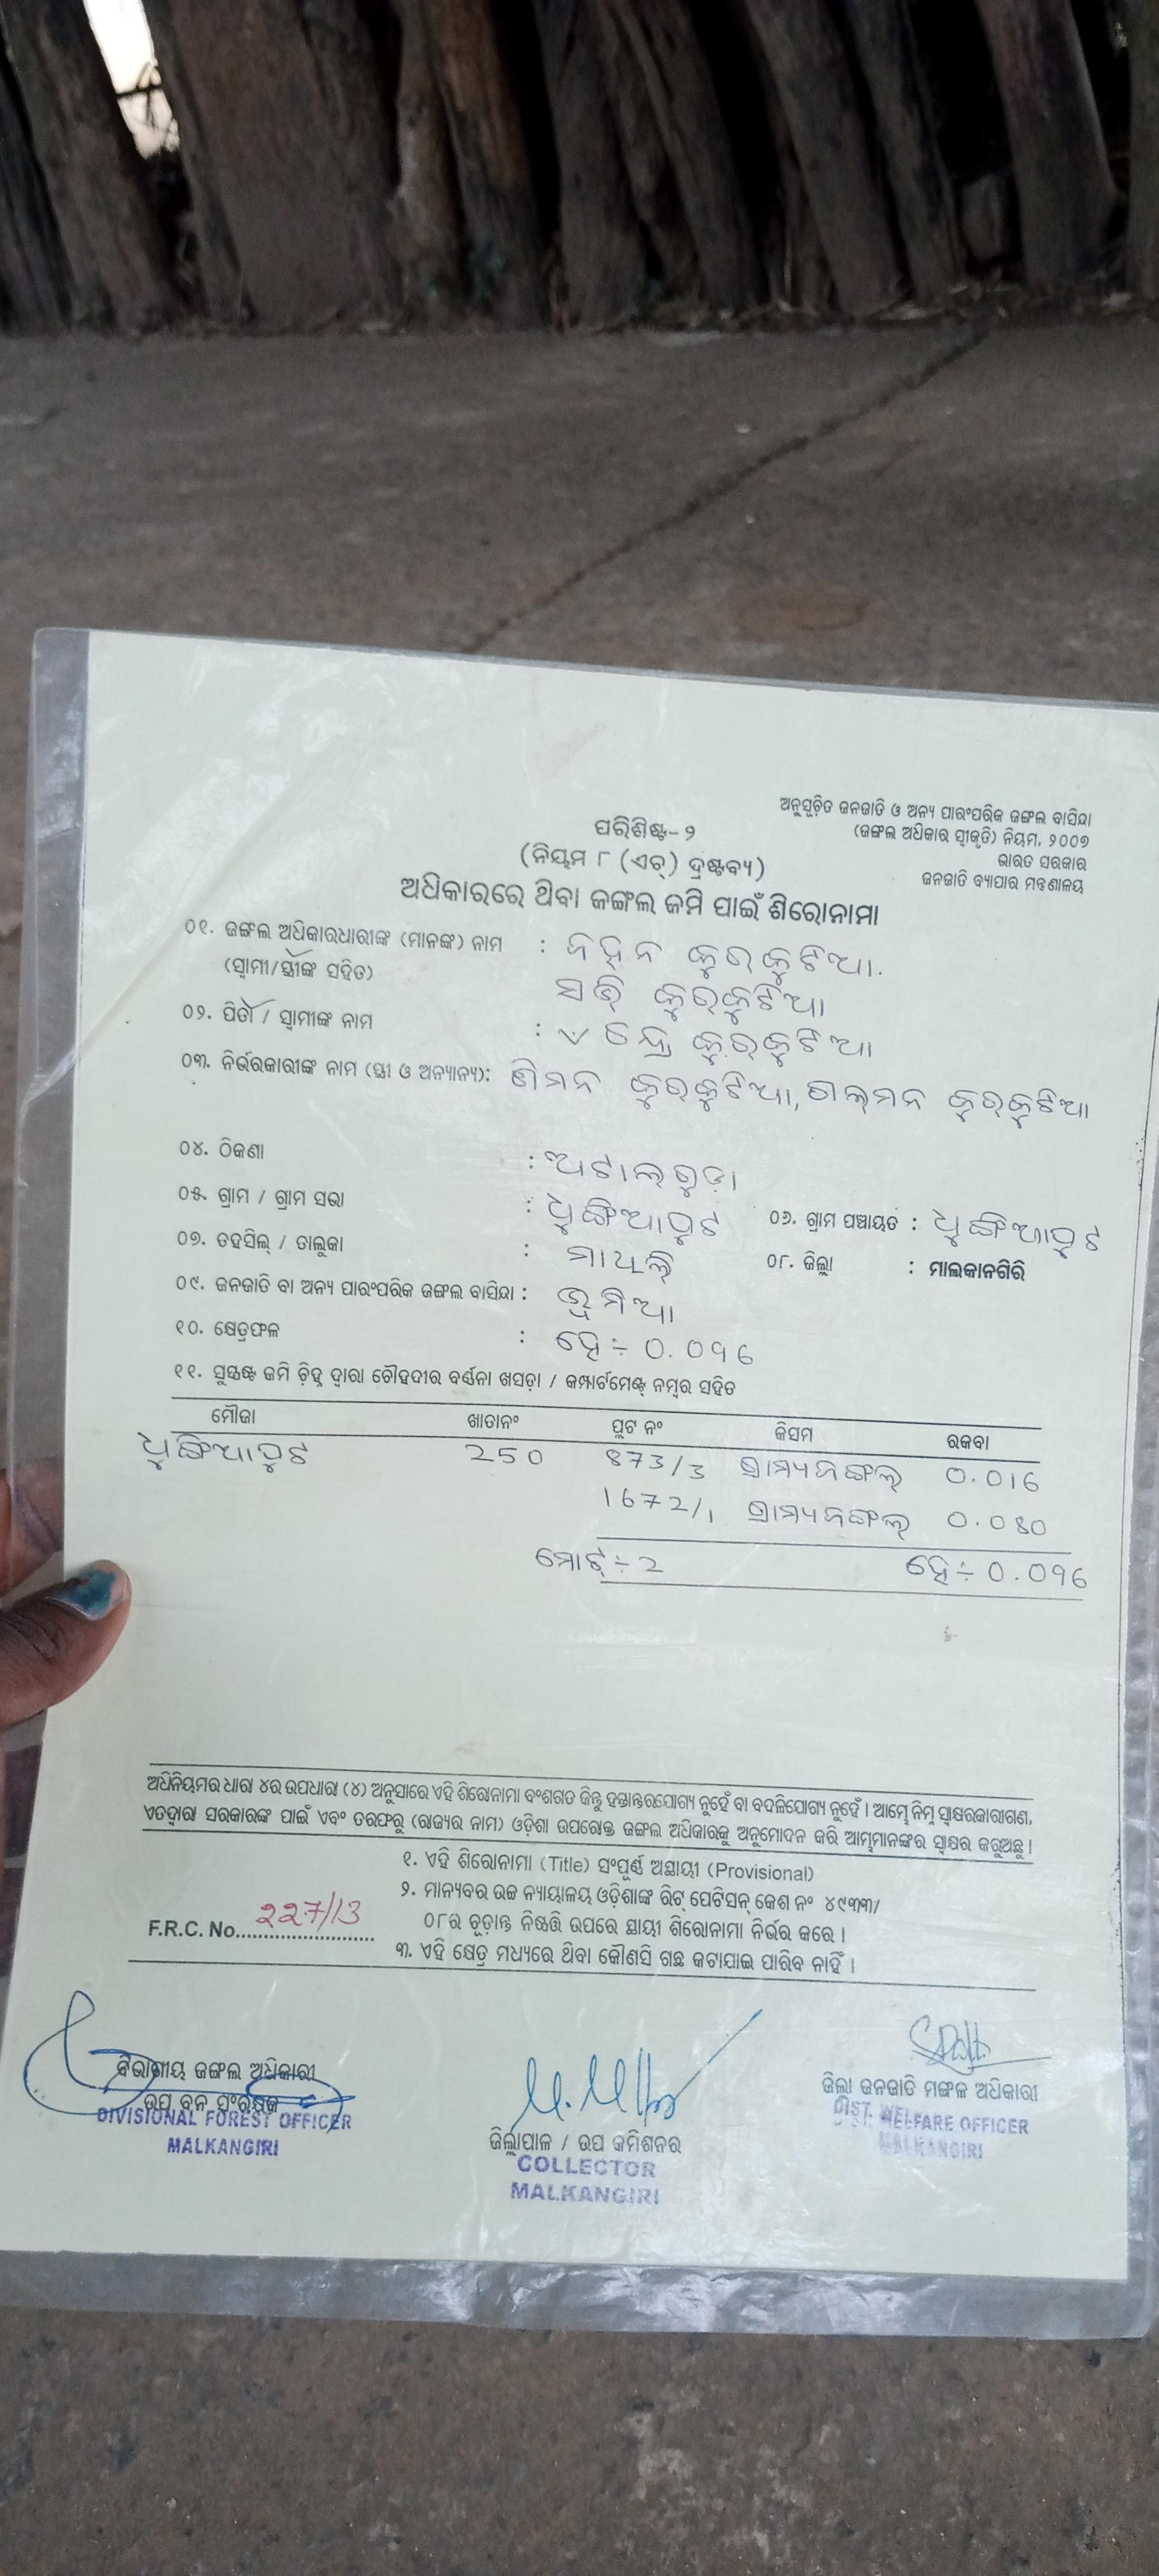 ଅନୁସୂଚିତ ଜନଜାତି ଓ ଅନ୍ୟ ପାରଂପରିକ ଜଙ୍ଗଲ ବାସିନ୍ଦା
(ଜଙ୍ଗଲ ଅଧିକାର ସ୍ୱୀକୃତି) ନିୟମ, ୨୦୦୭
ଭାରତ ସରକାର
ଜନଜାତି ବ୍ୟାପାର ମନ୍ତ୍ରଣାଳୟ
ପରିଶିଷ୍ଟ-୨
(ନିୟମ ୮ (ଏଚ୍) ଦ୍ରଷ୍ଟବ୍ୟ)
ଅଧିକାରରେ ଥିବା ଜଙ୍ଗଲ ଜମି ପାଇଁ ଶିରୋନାମା
୦୧. ଜଙ୍ଗଲ ଅଧିକାରଧାରୀଙ୍କ (ମାନଙ୍କ) ନାମ : କୁର୍କୁଟିଆ.
(ସ୍ୱାମୀ/ସ୍ତ୍ରୀଙ୍କ ସହିତ) କୁର୍କୁଟିଆ
୦୨. ପିତା / ସ୍ୱାମୀଙ୍କ ନାମ : କୁର୍କୁଟିଆ
୦୩. ନିର୍ଭରକାରୀଙ୍କ ନାମ (ସ୍ତ୍ରୀ ଓ ଅନ୍ୟାନ୍ୟ): କୁର୍କୁଟିଆ, କୁର୍କୁଟିଆ
୦୪. ଠିକଣା : ଅଟାଲଗୁଡ଼ା
୦୫. ଗ୍ରାମ / ଗ୍ରାମ ସଭା : ଧୁଙ୍ଗିଆପୁଟ ୦୬. ଗ୍ରାମ ପଞ୍ଚାୟତ : ଧୁଙ୍ଗିଆପୁଟ
୦୭. ତହସିଲ୍ / ତାଲୁକା : ମାଥିଲି ୦୮. ଜିଲ୍ଲା : ମାଲକାନଗିରି
୦୯. ଜନଜାତି ବା ଅନ୍ୟ ପାରଂପରିକ ଜଙ୍ଗଲ ବାସିନ୍ଦା : ଭୂମିଆ
୧୦. କ୍ଷେତ୍ରଫଳ : ହେ÷ 0.096
୧୧. ସୁସ୍ପଷ୍ଟ ଜମି ଚିହ୍ନ ଦ୍ୱାରା ଚୌହଦୀର ବର୍ଣ୍ଣନା ଖସଡ଼ା / କମ୍ପାର୍ଟମେଣ୍ଟ୍ ନମ୍ବର ସହିତ
ମୌଜା ଖାତାନଂ ପ୍ଲଟ ନଂ କିସମ ରକବା
ଧୁଙ୍ଗିଆପୁଟ 250 873/3 ଗ୍ରାମ୍ୟଜଙ୍ଗଲ୍ 0.016
1672/1 ଗ୍ରାମ୍ୟଜଙ୍ଗଲ୍ 0.080
ମୋଟ୍÷2 ହେ÷0.096
ଅଧିନିୟମର ଧାରା ୪ର ଉପଧାରା (୪) ଅନୁସାରେ ଏହି ଶିରୋନାମା ବଂଶଗତ କିନ୍ତୁ ହସ୍ତାନ୍ତରଯୋଗ୍ୟ ନୁହେଁ ବା ବଦଳିଯୋଗ୍ୟ ନୁହେଁ । ଆମ୍ଭେ ନିମ୍ନ ସ୍ୱାକ୍ଷରକାରୀଗଣ,
ଏତଦ୍ଦ୍ୱାରା ସରକାରଙ୍କ ପାଇଁ ଏବଂ ତରଫରୁ (ରାଜ୍ୟର ନାମ) ଓଡ଼ିଶା ଉପରୋକ୍ତ ଜଙ୍ଗଲ ଅଧିକାରକୁ ଅନୁମୋଦନ କରି ଆମ୍ଭମାନଙ୍କର ସ୍ୱାକ୍ଷର କରୁଅଛୁ ।
୧. ଏହି ଶିରୋନାମା (Title) ସଂପୂର୍ଣ୍ଣ ଅସ୍ଥାୟୀ (Provisional)
୨. ମାନ୍ୟବର ଉଚ୍ଚ ନ୍ୟାୟାଳୟ ଓଡ଼ିଶାଙ୍କ ରିଟ୍ ପେଟିସନ୍ କେଶ ନଂ ୪୯୩୩/
୦୮ର ଚୂଡ଼ାନ୍ତ ନିଷ୍ପତ୍ତି ଉପରେ ସ୍ଥାୟୀ ଶିରୋନାମା ନିର୍ଭର କରେ ।
F.R.C. No. 227/13
୩. ଏହି କ୍ଷେତ୍ର ମଧ୍ୟରେ ଥିବା କୌଣସି ଗଛ କଟାଯାଇ ପାରିବ ନାହିଁ ।
ବିଭାଗୀୟ ଜଙ୍ଗଲ ଅଧିକାରୀ
ଉପ ବନ ସଂରକ୍ଷକ
DIVISIONAL FOREST OFFICER
MALKANGIRI
ଜିଲ୍ଲାପାଳ / ଉପ କମିଶନର
COLLECTOR
MALKANGIRI
ଜିଲ୍ଲା ଜନଜାତି ମଙ୍ଗଳ ଅଧିକାରୀ
DIST. WELFARE OFFICER
MALKANGIRI